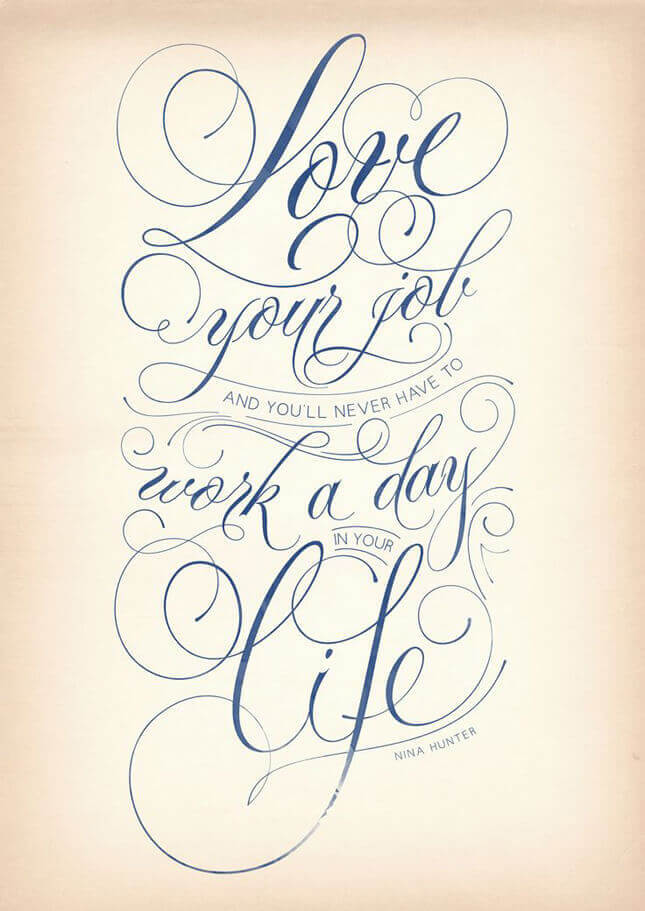 Love
your job
AND YOU'LL NEVER HAVE TO
work a day
IN YOUR
life
NINA HUNTER